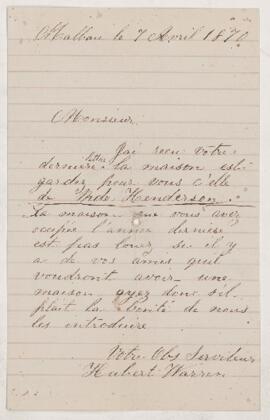 Malbaie le 7 Avril 1870
Monsieur
J'ai reçu votre
dernière lettre la maison est
gardez pour vous celle
de Mde Henderson.
la maison que vous avez
occupée l'année dernière
est pas louez se il y
a de vos amis qui
voudront avoir une
maison ayez donc sil
plait la bonté de nous
les introduire
Votre Obs Serviteur
Hubert Warren